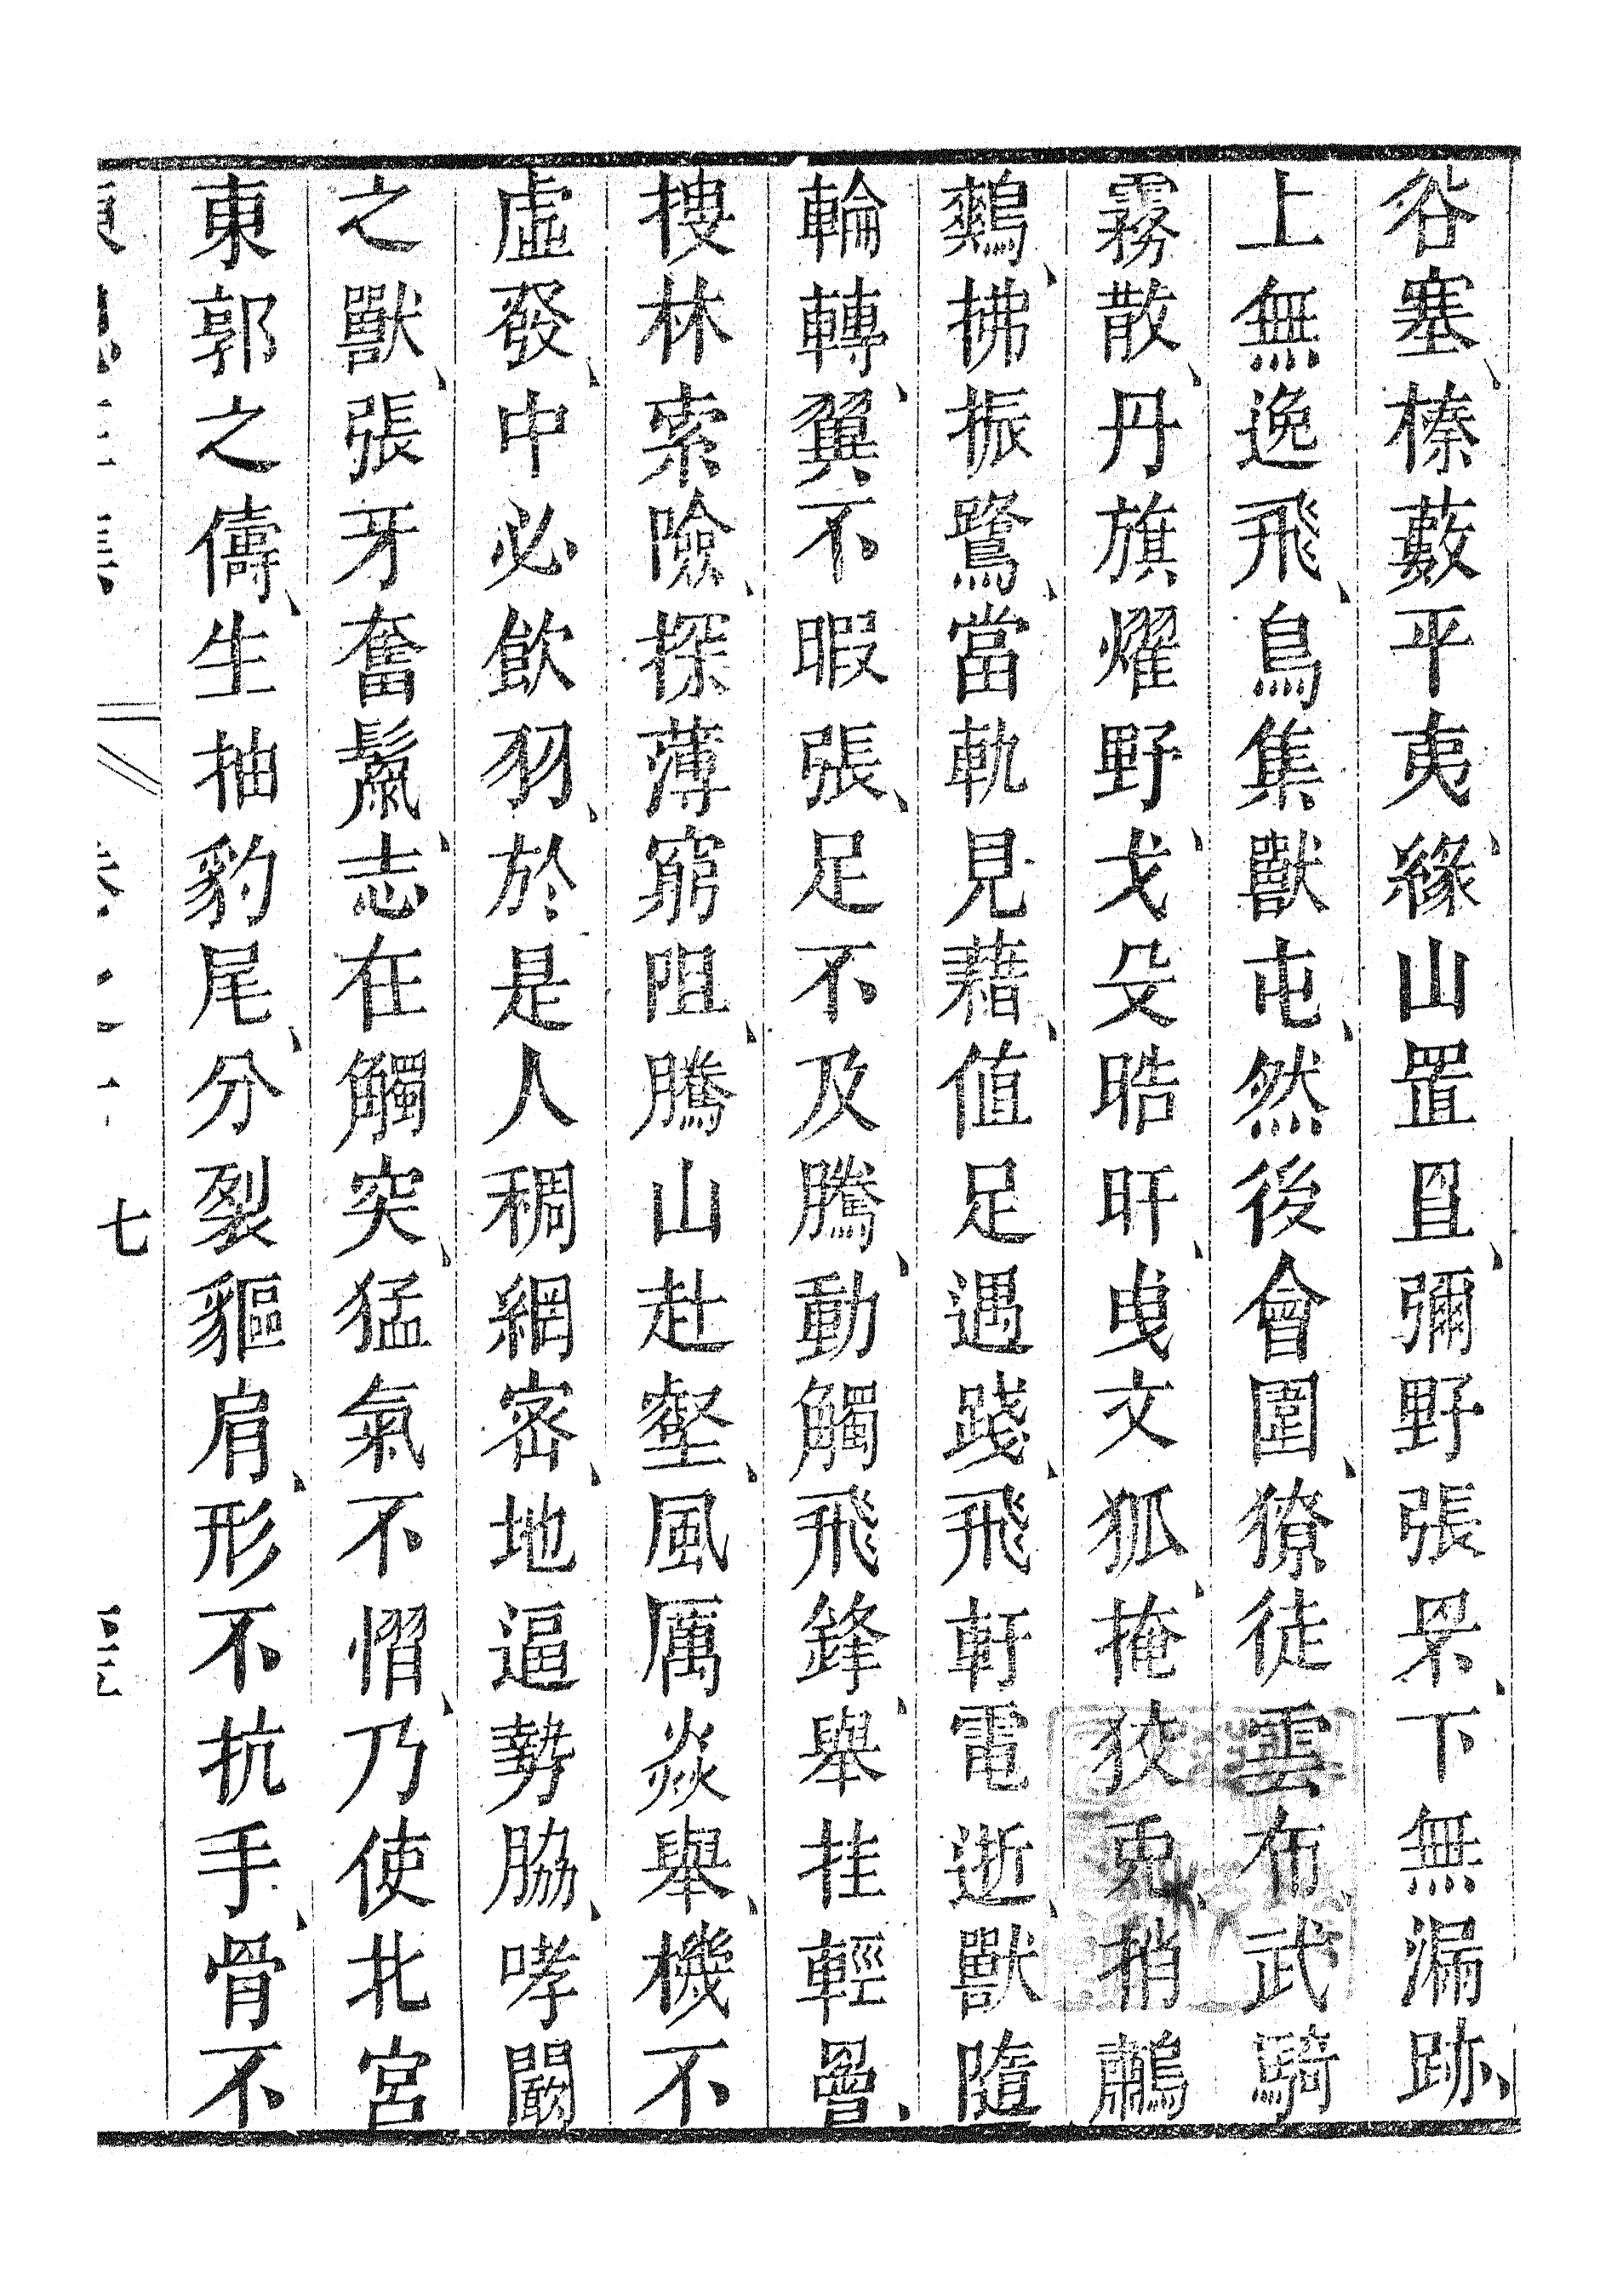 谷塞、榛藪平夷、緣山置罝、彌野張罘、下無漏跡、
上無逸飛、鳥集獸屯、然後會圍、獠徒雲布、武騎
霧散、丹旗燿野、戈殳晧旰、曳文狐、掩狡兔、捎鷫
鷞、拂振鷺、當軌見藉、值足遇踐、飛軒電逝、獸隨
輪轉、翼不暇張、足不及騰、動觸飛鋒、舉挂輕罾、
搜林索險、探薄窮阻、騰山赴壑、風厲焱舉、機不
虛發、中必飲羽、於是人稠網密、地逼勢脇、哮闞
之獸、張牙奮鬣、志在觸突、猛氣不慴、乃使北宮
東郭之儔、生抽豹尾、分裂貙肩、形不抗手、骨不
七